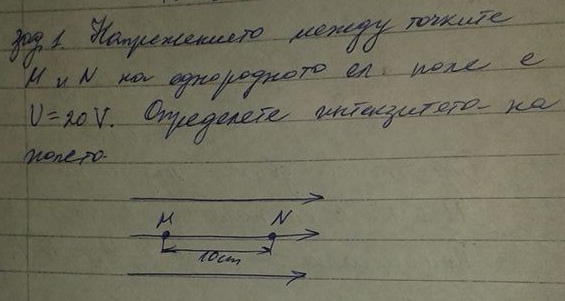 зад. 1. Напрежението между точките
M и N на еднородното ел. поле е
U = 20 V. Определете интензитета на
полето.
M N
10cm